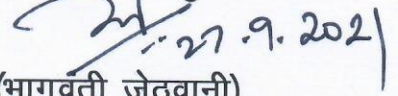 27.9.2021
(भागवंती जेठवानी)